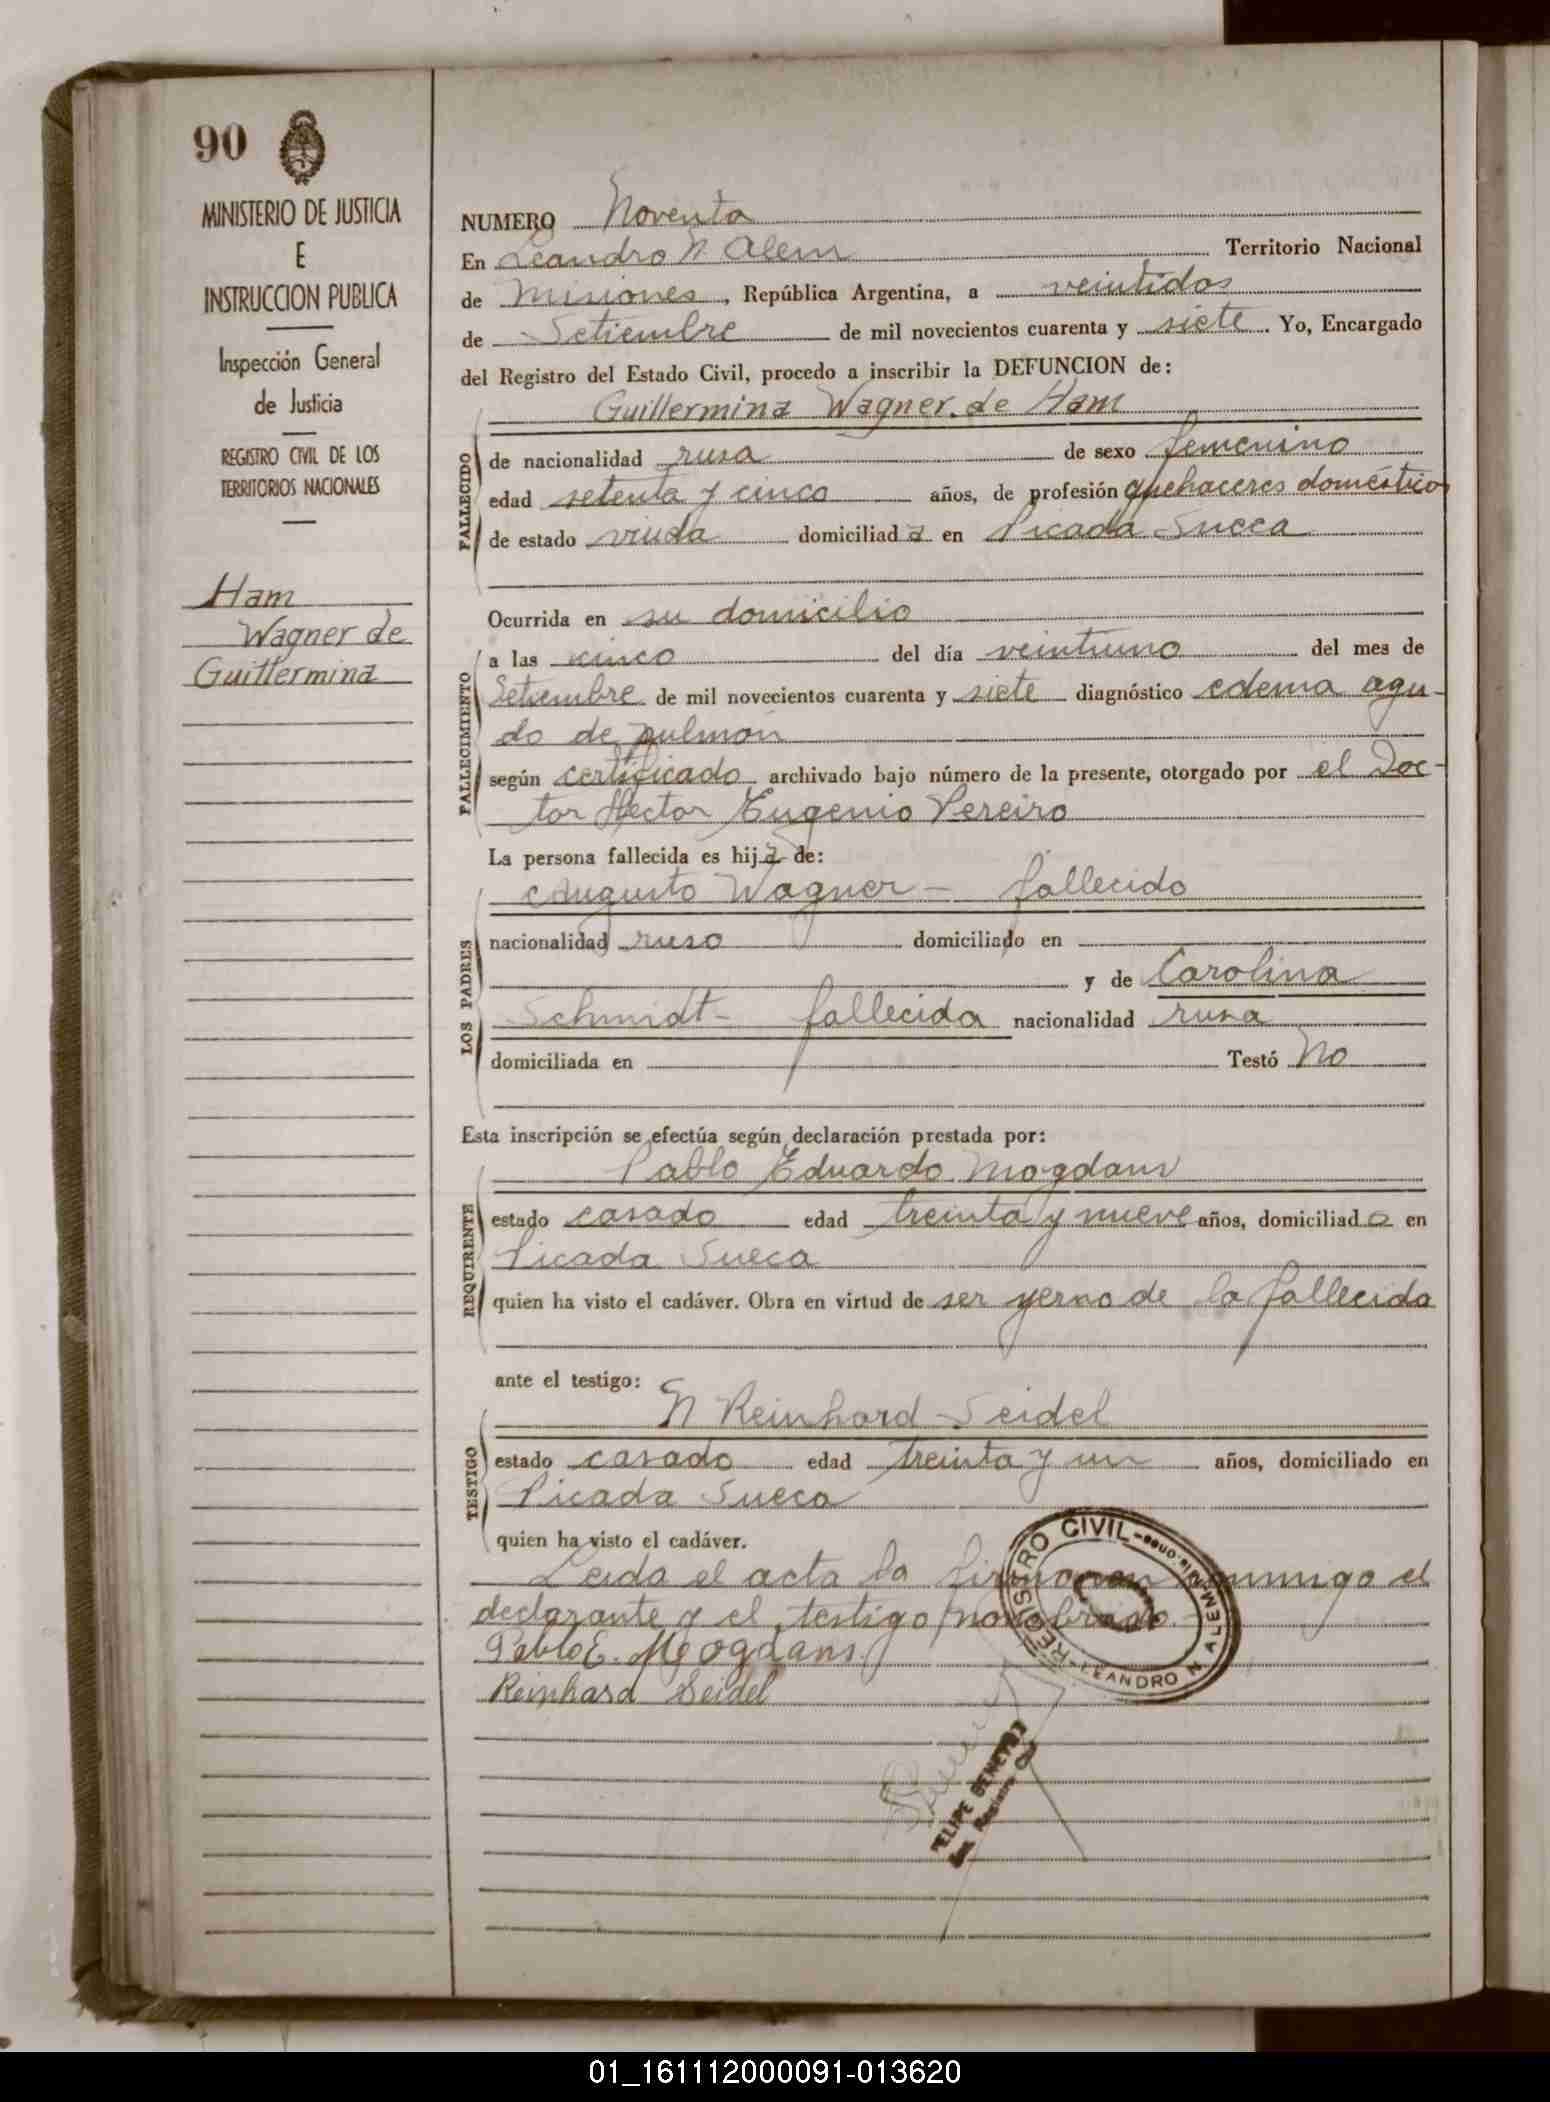 90
MINISTERIO DE JUSTICIA
E
INSTRUCCION PUBLICA
Inspección General
de Justicia
REGISTRO CIVIL DE LOS
TERRITORIOS NACIONALES
Ham
Wagner de
Guillermina
NUMERO Noventa
En Leandro N. Alem Territorio Nacional
de Misiones, República Argentina, a veintidos
de Setiembre de mil novecientos cuarenta y siete. Yo, Encargado
del Registro del Estado Civil, procedo a inscribir la DEFUNCION de:
Guillermina Wagner de Ham
FALLECIDO
de nacionalidad rusa de sexo femenino
edad setenta y cinco años, de profesión quehaceres domésticos
de estado viuda domiciliada en Picada Sueca
Ocurrida en su domicilio
FALLECIMIENTO
a las cinco del día veintiuno del mes de
Setiembre de mil novecientos cuarenta y siete diagnóstico edema agu-
do de pulmón
según certificado archivado bajo número de la presente, otorgado por el Doc-
tor Hector Eugenio Pereiro
La persona fallecida es hija de:
LOS PADRES
Augusto Wagner - fallecido
nacionalidad ruso domiciliado en
y de Carolina
Schmidt - fallecida nacionalidad rusa
domiciliada en Testó No
Esta inscripción se efectúa según declaración prestada por:
REQUIRENTE
Pablo Eduardo Mogdans
estado casado edad treinta y nueve años, domiciliado en
Picada Sueca
quien ha visto el cadáver. Obra en virtud de ser yerno de la fallecida
ante el testigo:
TESTIGO
Reinhard Seidel
estado casado edad treinta y un años, domiciliado en
Picada Sueca
quien ha visto el cadáver.
Leida el acta la firmaron conmigo el
declarante y el testigo nombrado.
Pablo E. Mogdans.
Reinhard Seidel
REGISTRO CIVIL
LEANDRO N. ALEM
FELIPE
Registro Civil
01_161112000091-013620